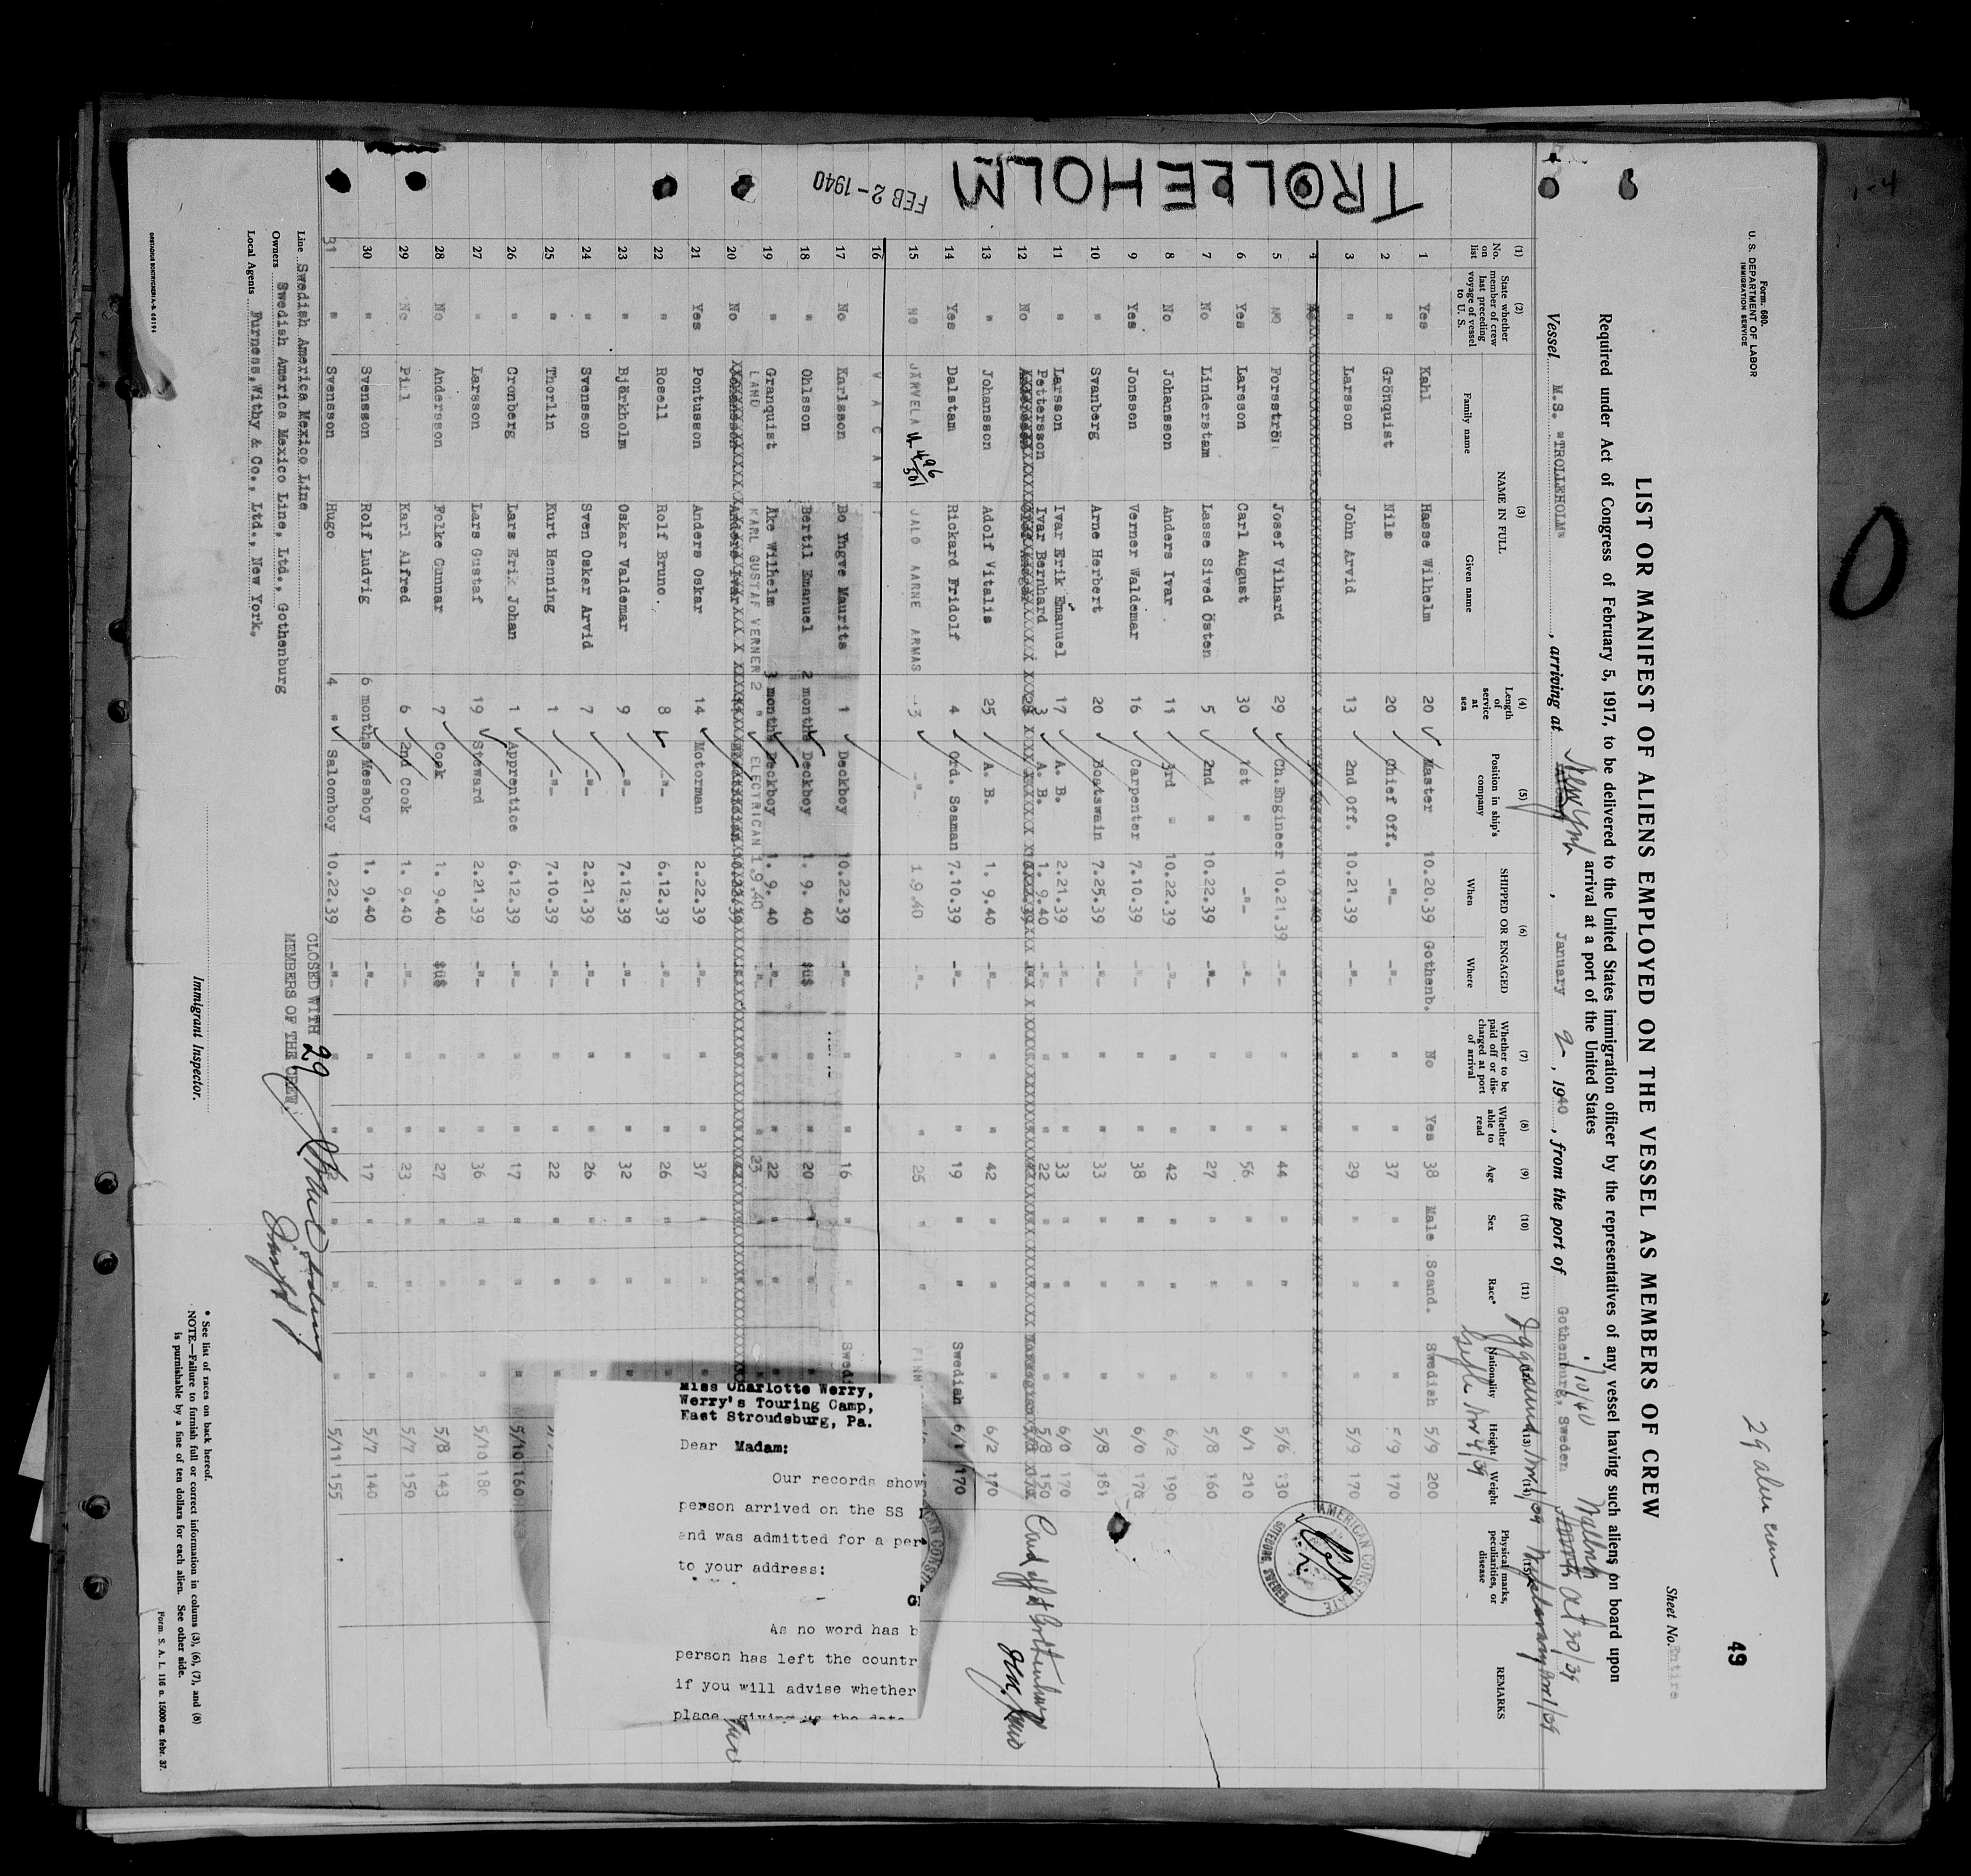 Form 680.
U. S. DEPARTMENT OF LABOR
IMMIGRATION SERVICE
29 alien crew
49
Sheet No. Entire
LIST OR MANIFEST OF ALIENS EMPLOYED ON THE VESSEL AS MEMBERS OF CREW
Required under Act of Congress of February 5, 1917, to be delivered to the United States immigration officer by the representatives of any vessel having such aliens on board upon
arrival at a port of the United States
Vessel M.S. "TROLLEHOLM", arriving at New York, January 2, 1940, from the port of Gothenburg, Sweden
1/10/40 Malmö Oct 30/39
(1) No. on list
(2) State whether member of crew last preceding voyage of vessel to U. S.
(3) NAME IN FULL Family name Given name
(4) Length of service at sea
(5) Position in ship's company
(6) SHIPPED OR ENGAGED When Where
(7) Whether to be paid off or discharged at port of arrival
(8) Whether able to read
(9) Age
(10) Sex
(11) Race*
Nationality
Height
Weight
Physical marks, peculiarities, or disease
REMARKS
1 Yes Kahl Hasse Wilhelm 20 Master 10.20.39 Gothenb. No Yes 38 Male Scand. Swedish 5/9 200
2 " Grönquist Nils 20 Chief Off. -"- -"- " " 37 " " " 5/9 170
3 " Larsson John Arvid 13 2nd Off. 10.21.39 -"- " " 29 " " " 5/9 170
4
5 NO Forsström Josef Vilhard 29 Ch.Engineer 10.21.39 -"- " " 44 " " " 5/6 130
6 Yes Larsson Carl August 30 1st " -"- -"- " " 56 " " " 6/1 210
7 No Linderstam Lasse Sived Östen 5 2nd " 10.22.39 -"- " " 27 " " " 5/8 160
8 No Johansson Anders Ivar 11 3rd " 10.22.39 -"- " " 42 " " " 6/2 190
9 Yes Jonsson Verner Waldemar 16 Carpenter 7.10.39 -"- " " 38 " " " 6/0 170
10 " Svanberg Arne Herbert 20 Boatswain 7.25.39 -"- " " 33 " " " 5/8 181
11 " Larsson Ivar Erik Emanuel 17 A. B. 2.21.39 -"- " " 33 " " " 6/0 170
Pettersson Ivar Bernhard 3 A. B. 1. 9.40 -"- " " 22 " " " 5/8 150
12 No
13 " Johansson Adolf Vitalis 25 A. B. 1. 9.40 -"- " " 42 " " " 6/2 170
14 Yes Dalstam Rickard Fridolf 4 Ord. Seaman 7.10.39 -"- " " 19 " " Swedish 6/1 170
15 NO JÄRVELÄ JALO AARNE ARMAS 3 -"- 1.9.40 -"- " 25 " " FINN.
16 V A C A N T
17 No Karlsson Bo Yngve Maurits 1 Deckboy 10.22.39 -"- " " 16 " "
18 " Ohlsson Bertil Emanuel 2 months Deckboy 1. 9. 40 " " 20 " "
19 " Granquist Åke Wilhelm 3 months Deckboy 1. 9. 40 -"- " " 22 " "
LAND KARL GUSTAF VERNER 2 " ELECTRICAN 1.9.40 " 23
20 No
21 Yes Pontusson Anders Oskar 14 Motorman 2.22.39 -"- " " 37 " "
22 " Rosell Rolf Bruno. 8 -"- 6.12.39 -"- " " 26 " "
23 " Björkholm Oskar Valdemar 9 -"- 7.12.39 -"- " " 32 " "
24 " Svensson Sven Oskar Arvid 7 -"- 2.21.39 -"- " " 26 " "
25 " Thorlin Kurt Henning 1 -"- 7.10.39 -"- " " 22 " "
26 " Cronberg Lars Erik Johan 1 Apprentice 6.12.39 -"- " " 17 " " " 5/10 160
27 " Larsson Lars Gustaf 19 Steward 2.21.39 -"- " " 36 " " " 5/10 180
28 No Andersson Folke Gunnar 7 Cook 1. 9.40 " " 27 " " " 5/8 143
29 No Pil Karl Alfred 6 2nd Cook 1. 9.40 -"- " " 23 " " " 5/7 150
30 " Svensson Rolf Ludvig 6 months Messboy 1. 9.40 -"- " " 17 " " " 5/7 140
31 " Svensson Hugo 4 " Salonboy 10.22.39 -"- " " " " " 5/11 155
TROLLEHOLM
FEB 2-1940
AMERICAN CONSULATE
GOTEBORG, SWEDEN
Miss Charlotte Werry,
Werry's Touring Camp,
East Stroudsburg, Pa.
Dear Madam:
Our records show
person arrived on the SS
and was admitted for a per
to your address:
As no word has b
person has left the countr
if you will advise whether
place giving us the date
CLOSED WITH 29
MEMBERS OF THE CREW.
Line Swedish America Mexico Line
Owners Swedish America Mexico Line, Ltd., Gothenburg
Local Agents Furness, Withy & Co., Ltd., New York.
Immigrant Inspector.
* See list of races on back hereof.
NOTE.—Failure to furnish full or correct information in colums (3), (6), (7), and (8)
is punishable by a fine of ten dollars for each alien. See other side.
Form. S. A. L. 116 n. 15000 ex. febr. 37.